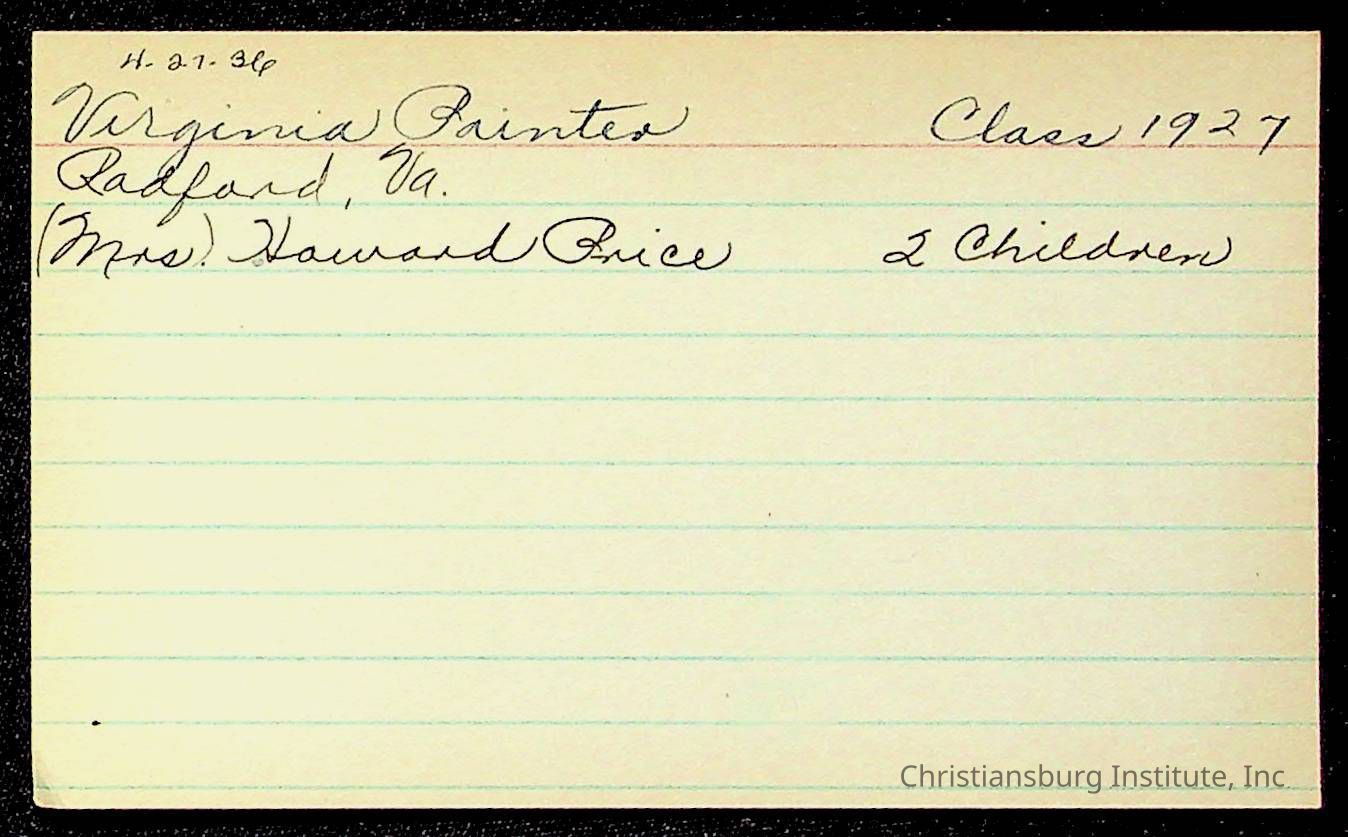 4-27-36
Virginia Painter Class 1927
Radford, Va.
(Mrs). Howard Price 2 Children
Christiansburg Institute, Inc